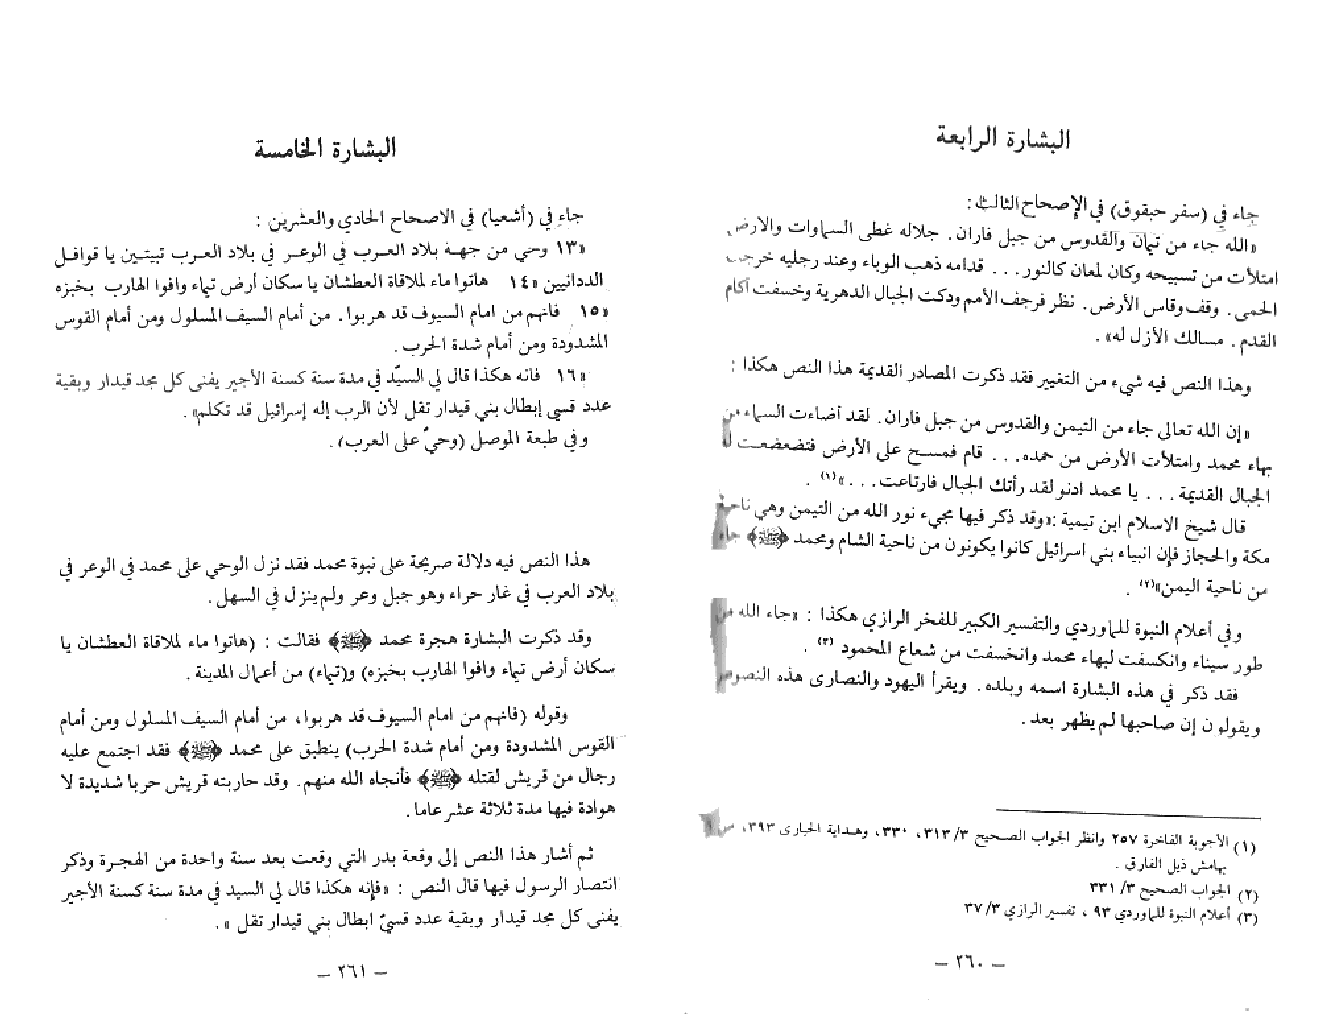 البشارة الرابعة
جاء في (سفر حبقوق) في الإصحاح الثالث:
«الله جاء من تيمان والقدوس من جبل فاران. جلاله غطى السماوات والارض
امتلأت من تسبيحه وكان لمعان كالنور... قدامه ذهب الوباء وعند رجليه خرجت
الحمى. وقف وقاس الأرض. نظر فرجف الأمم ودكت الجبال الدهرية وخسفت آكام
القدم. مسالك الأزل له».
وهذا النص فيه شيء من التغيير فقد ذكرت المصادر القديمة هذا النص هكذا:
«إن الله تعالى جاء من التيمن والقدوس من جبل فاران. لقد أضاءت السماء من
بهاء محمد وامتلأت الأرض من حمده... قام فمسح على الأرض فتضعضعت له
الجبال القديمة... يا محمد ادنو لقد رأتك الجبال فارتاعت...»(١).
قال شيخ الاسلام ابن تيمية: «وقد ذكر فيها مجيء نور الله من التيمن وهي ناحية
مكة والحجاز فإن انبياء بني اسرائيل كانوا يكونون من ناحية الشام ومحمد ﴿ﷺ﴾ جاء
من ناحية اليمن»(٢).
وفي أعلام النبوة للماوردي والتفسير الكبير للفخر الرازي هكذا: «جاء الله من
طور سيناء وانكسفت لبهاء محمد وانخسفت من شعاع المحمود (٣).
فقد ذكر في هذه البشارة اسمه وبلده. ويقرأ اليهود والنصارى هذه النصوص
ويقولون إن صاحبها لم يظهر بعد.
(١) الأجوبة الفاخرة ٢٥٧ وانظر الجواب الصحيح ٣/ ٣١٣، ٣٣٠، وهداية الحيارى ٣٩٣،
بهامش ذيل الفارق.
(٢) الجواب الصحيح ٣/ ٣٣١
(٣) أعلام النبوة للماوردي ٩٣، تفسير الرازي ٣/ ٣٧
— ٢٦٠ —
البشارة الخامسة
جاء في (أشعيا) في الاصحاح الحادي والعشرين:
«١٣ وحي من جهة بلاد العرب في الوعر في بلاد العرب تبيتين يا قوافل
الددانيين «١٤ هاتوا ماء لملاقاة العطشان يا سكان أرض تيماء وافوا الهارب بخبزه
«١٥ فانهم من امام السيوف قد هربوا. من أمام السيف المسلول ومن أمام القوس
المشدودة ومن أمام شدة الحرب.
«١٦ فانه هكذا قال لي السيّد في مدة سنة كسنة الأجير يفنى كل مجد قيدار وبقية
عدد قسي إبطال بني قيدار تقل لأن الرب إله إسرائيل قد تكلم».
وفي طبعة الموصل (وحيٌ على العرب).
هذا النص فيه دلالة صريحة على نبوة محمد فقد نزل الوحي على محمد في الوعر في
بلاد العرب في غار حراء وهو جبل وعر ولم ينزل في السهل.
وقد ذكرت البشارة هجرة محمد ﴿ﷺ﴾ فقالت: (هاتوا ماء لملاقاة العطشان يا
سكان أرض تيماء وافوا الهارب بخبزه) و(تيماء) من أعمال المدينة.
وقوله (فانهم من امام السيوف قد هربوا، من أمام السيف المسلول ومن أمام
القوس المشدودة ومن أمام شدة الحرب) ينطبق على محمد ﴿ﷺ﴾ فقد اجتمع عليه
رجال من قريش لقتله ﴿ﷺ﴾ فأنجاه الله منهم. وقد حاربته قريش حربا شديدة لا
هوادة فيها مدة ثلاثة عشر عاما.
ثم أشار هذا النص إلى وقعة بدر التي وقعت بعد سنة واحدة من الهجرة وذكر
انتصار الرسول فيها قال النص: «فإنه هكذا قال لي السيد في مدة سنة كسنة الأجير
يفنى كل مجد قيدار وبقية عدد قسيّ ابطال بني قيدار تقل».
— ٢٦١ —